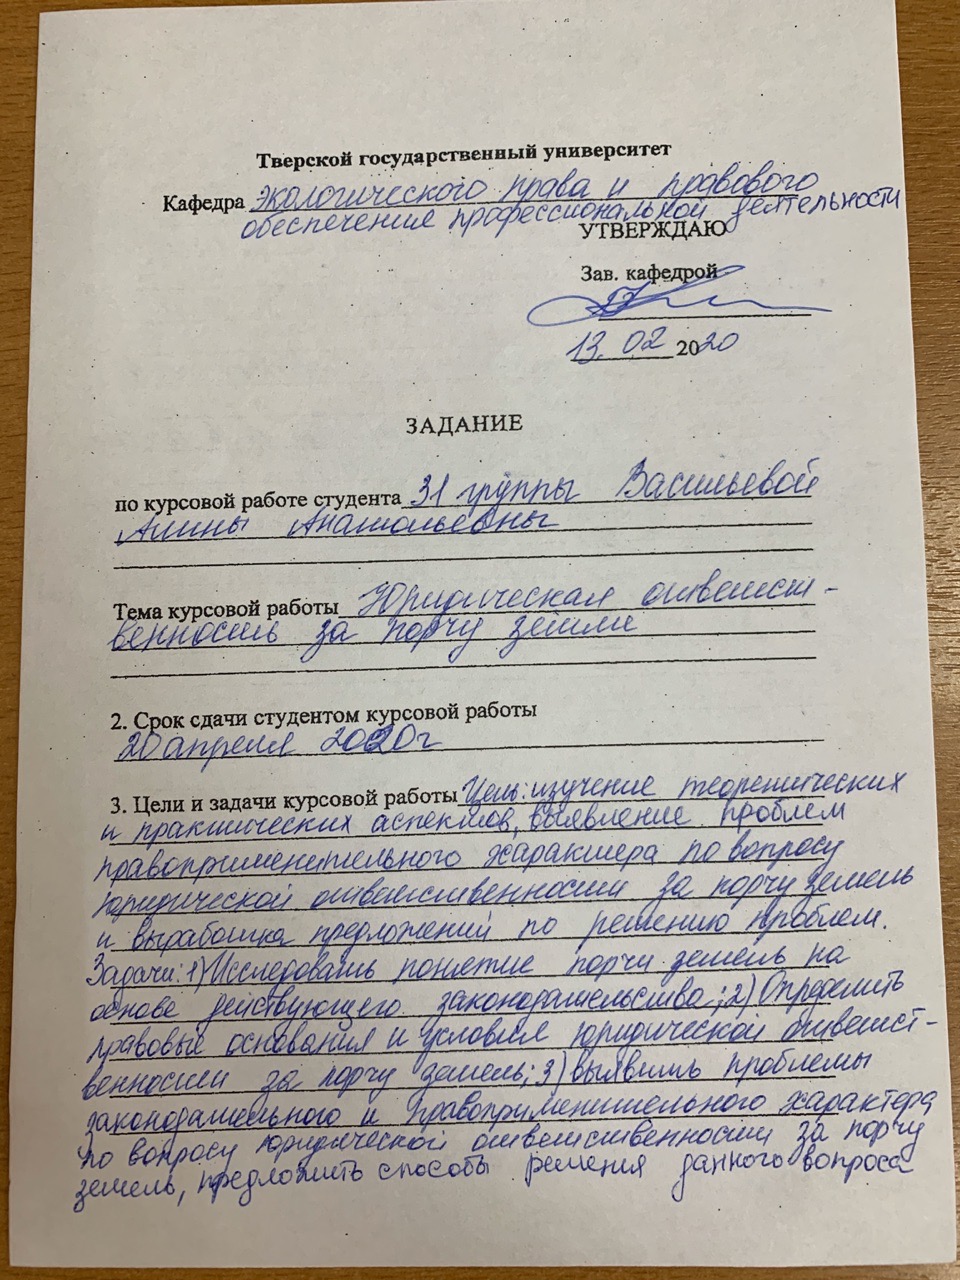 Тверской государственный университет
Кафедра экологического права и правового
обеспечения профессиональной деятельности
УТВЕРЖДАЮ
Зав. кафедрой
13. 02 2020
ЗАДАНИЕ
по курсовой работе студента 31 группы Васильевой
Алины Анатольевны
Тема курсовой работы Юридическая ответст-
венность за порчу земли
2. Срок сдачи студентом курсовой работы
20 апреля 2020г
3. Цели и задачи курсовой работы Цель: изучение теоретических
и практических аспектов, выявление проблем
правоприменительного характера по вопросу
юридической ответственности за порчу земель
и выработка предложений по решению проблем.
Задачи: 1) Исследовать понятие порчи земель на
основе действующего законодательства; 2) Определить
правовые основания и условия юридической ответст-
венности за порчу земель; 3) выявить проблемы
законодательного и правоприменительного характера
по вопросу юридической ответственности за порчу
земель, предложить способы решения данного вопроса